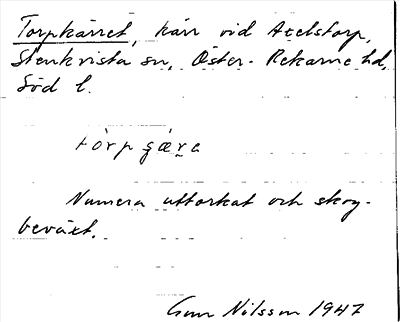 Torpkärret, kärr vid Axelstorp,
Stenkvista sn, Öster-Rekarne hd,
Söd l.
Numera uttorkat och skog-
beväxt.
Gun Nilsson 1947